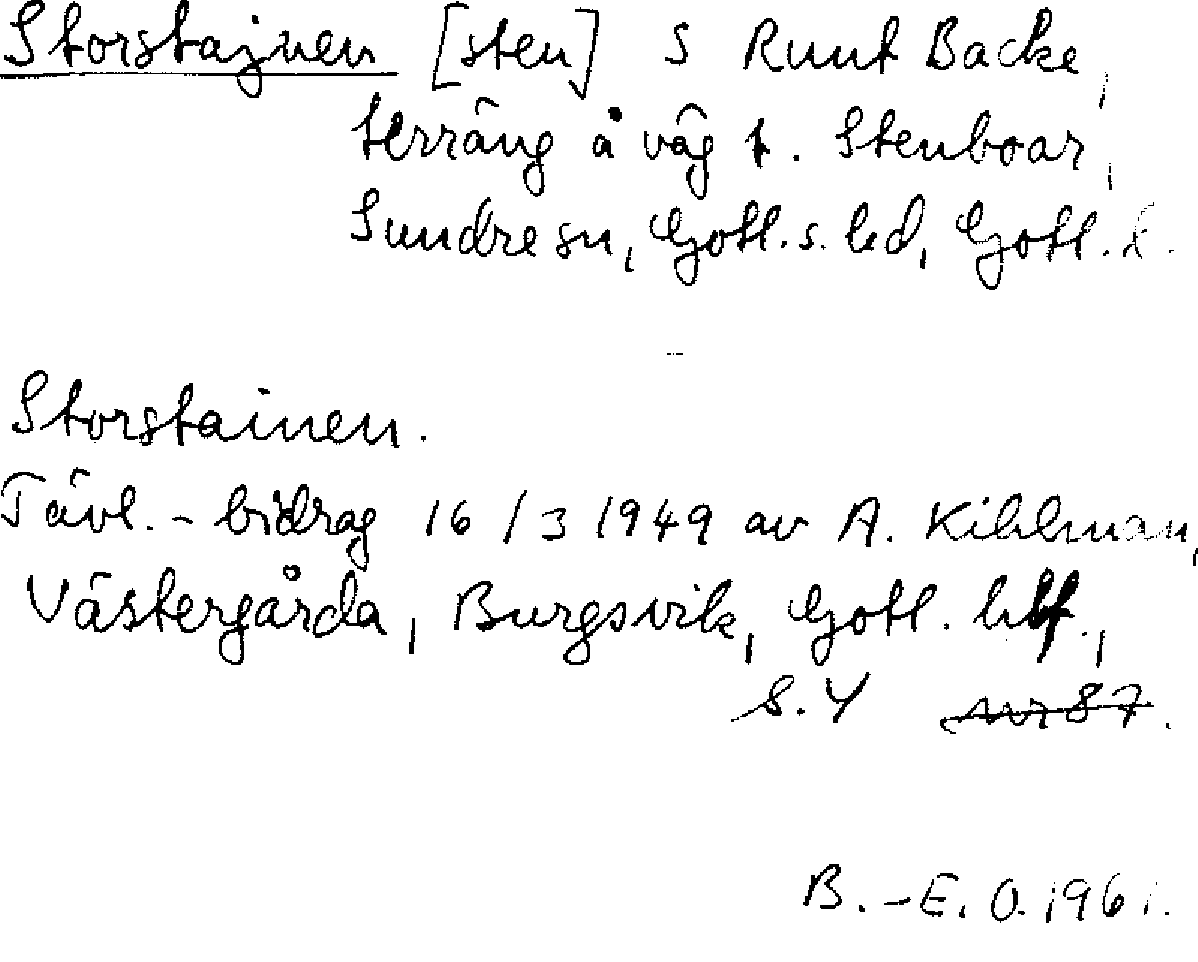 Storstajnen [sten] S Runt Backe,
terräng å väg t. Stenboar,
Sundre sn, Gotl. s. hd, Gotl. l.
Storstainen.
Tävl.-bidrag 16/3 1949 av A. Kihlman,
Västergårda, Burgsvik, Gotl.
S. 4 nr 87.
B.-E. O. 1961.